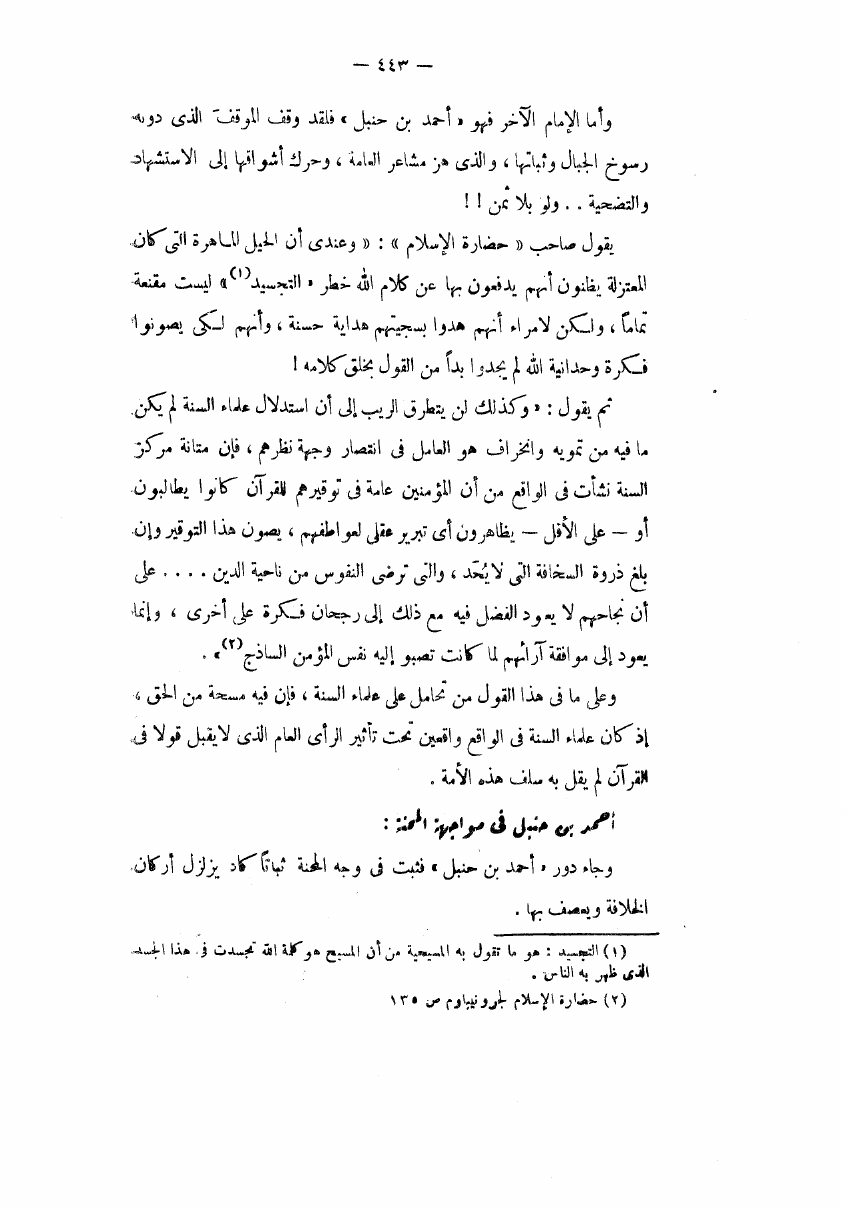 — ٤٤٣ —
وأما الإمام الآخر فهو « أحمد بن حنبل » فلقد وقف الموقف الذى دونه
رسوخ الجبال وثباتها ، والذى هز مشاعر العامة ، وحرك أشواقها إلى الاستشهاد
والتضحية . . ولو بلا ثمن ! !
يقول صاحب « حضارة الإسلام » : « وعندى أن الحيل الماهرة التى كان
المعتزلة يظنون أنهم يدفعون بها عن كلام الله خطر « التجسيد(١) » ليست مقنعة
تماماً ، ولكن لامراء أنهم هدوا بسجيتهم هداية حسنة ، وأنهم لكى يصونوا
فكرة وحدانية الله لم يجدوا بداً من القول بخلق كلامه !
ثم يقول : « وكذلك لن يتطرق الريب إلى أن استدلال علماء السنة لم يكن
ما فيه من تمويه وانخراف هو العامل فى انتصار وجهة نظرهم ، فإن متانة مركز
السنة نشأت فى الواقع من أن المؤمنين عامة فى توقيرهم للقرآن كانوا يطالبون
أو — على الأقل — يظاهرون أى تبرير عقلى لعواطفهم ، يصون هذا التوقير وإن
بلغ ذروة السخافة التى لا يُحَد ، والتى ترضى النفوس من ناحية الدين . . . . على
أن نجاحهم لا يعود الفضل فيه مع ذلك إلى رجحان فكرة على أخرى ، وإنما
يعود إلى موافقة آرائهم لما كانت تصبو إليه نفس المؤمن الساذج(٢) » .
وعلى ما فى هذا القول من تحامل على علماء السنة ، فإن فيه مسحة من الحق ،
إذ كان علماء السنة فى الواقع واقعين تحت تأثير الرأى العام الذى لايقبل قولا فى
القرآن لم يقل به سلف هذه الأمة .
أحمد بن حنبل فى مواجهة المحنة :
وجاء دور « أحمد بن حنبل » فثبت فى وجه المحنة ثباتاً كاد يزلزل أركان
الخلافة ويعصف بها .
(١) التجسيد : هو ما تقول به المسيحية من أن المسيح هو كلمة الله تجسدت فى هذا الجسد
الذى ظهر به الناس .
(٢) حضارة الإسلام لجرونيباوم ص ١٣٥